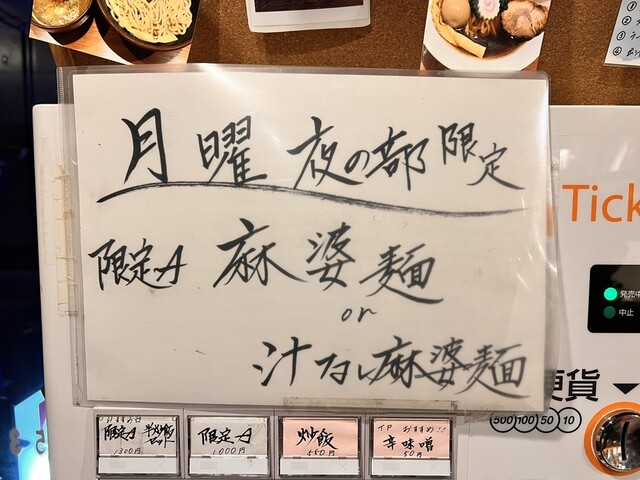 月曜 夜の部 限定
限定A 麻婆麺
or
汁なし麻婆麺
Tick
発売中
中止
硬貨
500 100 50 10
おすすめ!!
限定A 半炒飯セット
1300円
限定A
1000円
炒飯
550円
TP おすすめ!!
辛味噌
50円